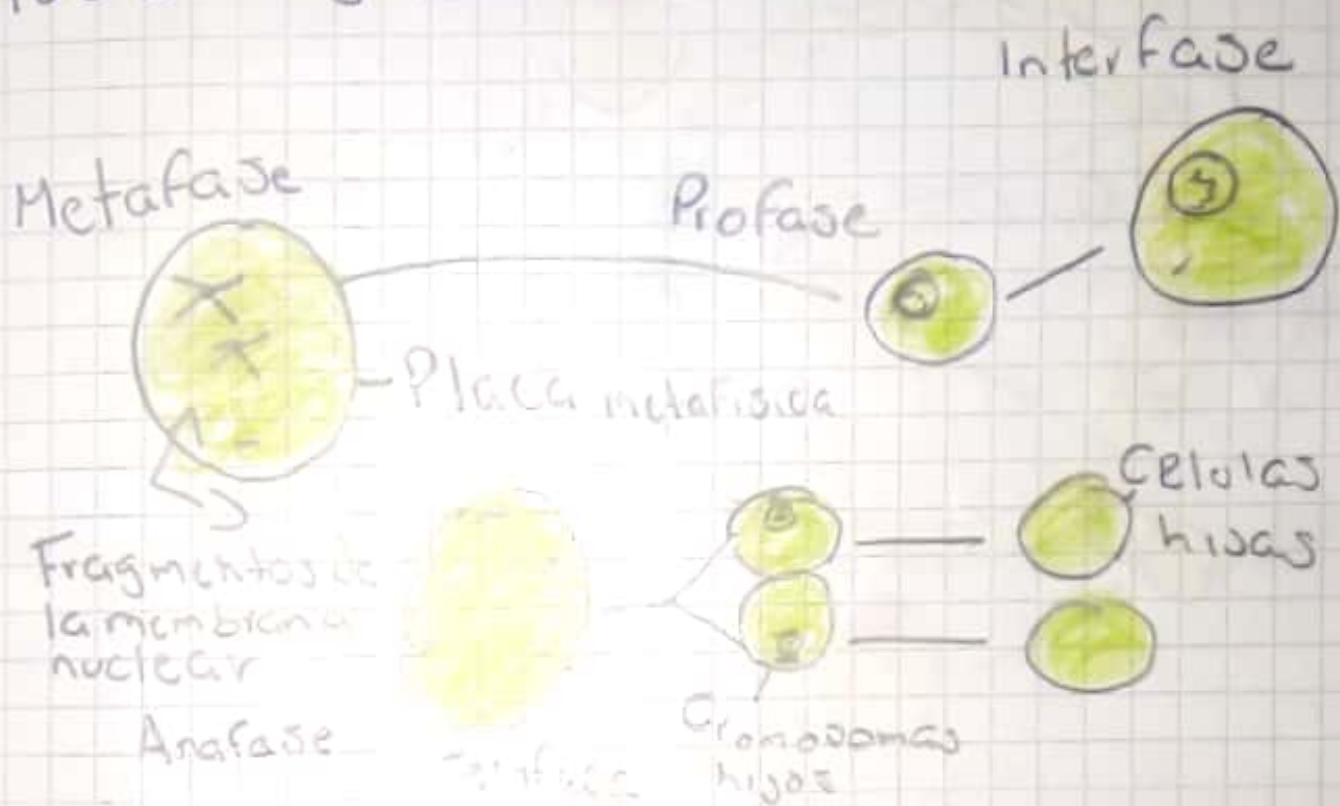 Interfase
Metafase
Profase
Placa metafisica
Celulas
hisas
Fragmentos de
la membrana
nuclear
Anafase
Cromosomas
hijos